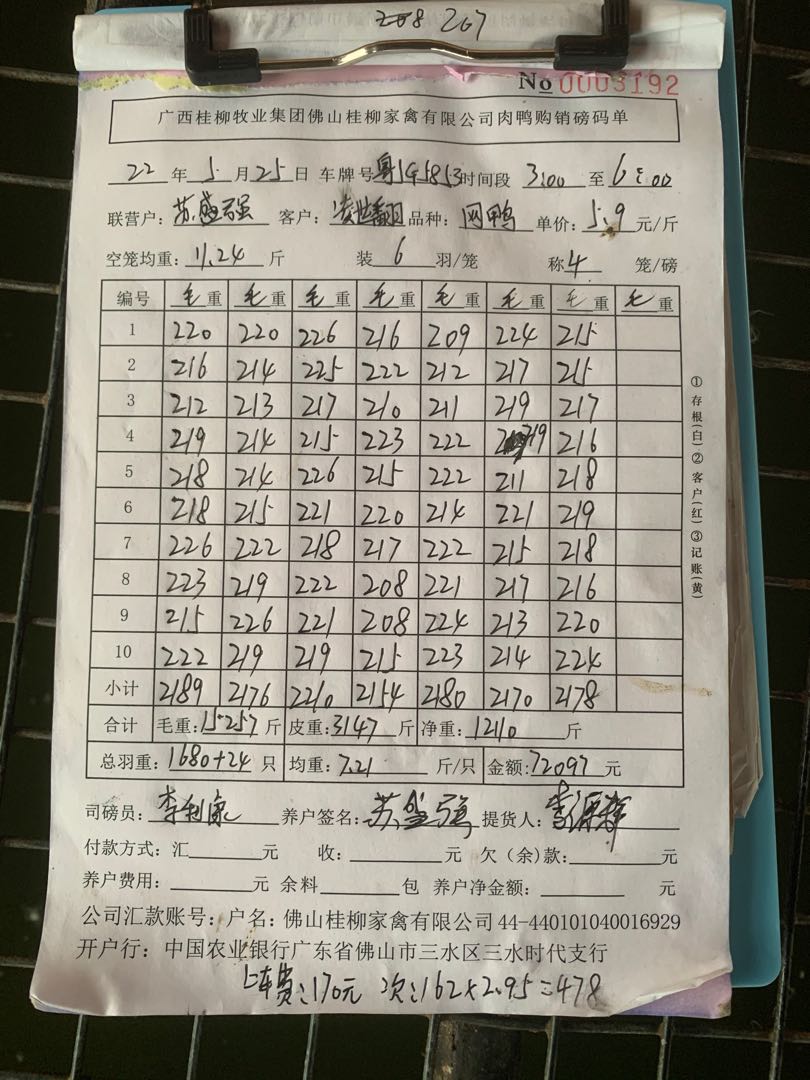 267
No 0003192
广西桂柳牧业集团佛山桂柳家禽有限公司肉鸭购销磅码单
22 年 5 月 25 日 车牌号 时间段 3:00 至 6:00
联营户: 苏盛强 客户: 品种: 网鸭 单价: 5.9 元/斤
空笼均重: 11.24 斤 装 6 羽/笼 称 4 笼/磅
编号 毛重 毛重 毛重 毛重 毛重 毛重 毛重 毛重
1 220 220 226 216 209 224 215
2 216 214 225 222 212 217 215
3 212 213 217 210 211 219 217
4 219 214 215 223 222 219 216
5 218 214 226 215 222 211 218
6 218 215 221 220 214 221 219
7 226 222 218 217 222 215 218
8 223 219 222 208 221 217 216
9 215 226 221 208 224 213 220
10 222 219 219 215 223 214 224
小计 2189 2176 2210 2154 2180 2170 2178
合计 毛重: 15257 斤 皮重: 3147 斤 净重: 12110 斤
总羽重: 1680+24 只 均重: 7.21 斤/只 金额: 72097 元
司磅员: 李利康 养户签名: 苏盛强 提货人:
付款方式: 汇 元 收: 元 欠(余)款: 元
养户费用: 元 余料 包 养户净金额: 元
公司汇款账号: 户名: 佛山桂柳家禽有限公司 44-440101040016929
开户行: 中国农业银行广东省佛山市三水区三水时代支行
上车费: 170元 次: 162×2.95=478
①存根(白)②客户(红)③记账(黄)